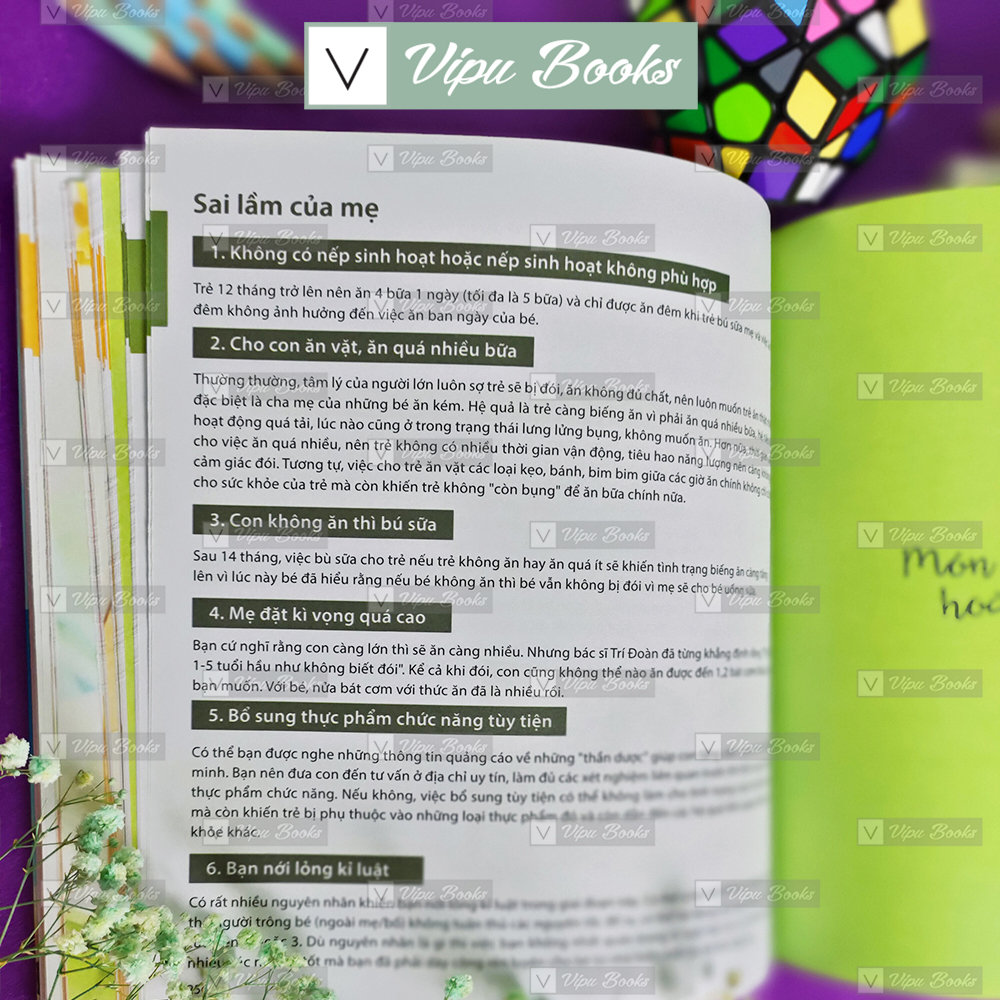 V Vipu Books
Sai lầm của mẹ
1. Không có nếp sinh hoạt hoặc nếp sinh hoạt không phù hợp
Trẻ 12 tháng trở lên nên ăn 4 bữa 1 ngày (tối đa là 5 bữa) và chỉ được ăn đêm khi trẻ bú sữa mẹ và việc
đêm không ảnh hưởng đến việc ăn ban ngày của bé.
2. Cho con ăn vặt, ăn quá nhiều bữa
Thường thường, tâm lý của người lớn luôn sợ trẻ sẽ bị đói, ăn không đủ chất, nên luôn muốn trẻ ăn
đặc biệt là cha mẹ của những bé ăn kém. Hệ quả là trẻ càng biếng ăn vì phải ăn quá nhiều bữa,
hoạt động quá tải, lúc nào cũng ở trong trạng thái lưng lửng bụng, không muốn ăn. Hơn nữa,
cho việc ăn quá nhiều, nên trẻ không có nhiều thời gian vận động, tiêu hao năng lượng nên càng
cảm giác đói. Tương tự, việc cho trẻ ăn vặt các loại kẹo, bánh, bim bim giữa các giờ ăn chính không
cho sức khỏe của trẻ mà còn khiến trẻ không "còn bụng" để ăn bữa chính nữa.
3. Con không ăn thì bú sữa
Sau 14 tháng, việc bù sữa cho trẻ nếu trẻ không ăn hay ăn quá ít sẽ khiến tình trạng biếng ăn càng
lên vì lúc này bé đã hiểu rằng nếu bé không ăn thì bé vẫn không bị đói vì mẹ sẽ cho bé uống sữa.
4. Mẹ đặt kì vọng quá cao
Bạn cứ nghĩ rằng con càng lớn thì sẽ ăn càng nhiều. Nhưng bác sĩ Trí Đoàn đã từng khẳng định
1-5 tuổi hầu như không biết đói". Kể cả khi đói, con cũng không thể nào ăn được đến 1,2 bát
bạn muốn. Với bé, nửa bát cơm với thức ăn đã là nhiều rồi.
5. Bổ sung thực phẩm chức năng tùy tiện
Có thể bạn được nghe những thông tin quảng cáo về những "thần dược" giúp
minh. Bạn nên đưa con đến tư vấn ở địa chỉ uy tín, làm đủ các xét nghiệm liên quan
thực phẩm chức năng. Nếu không, việc bổ sung tùy tiện có thể không làm cho
mà còn khiến trẻ bị phụ thuộc vào những loại thực phẩm đó và
khỏe khác.
6. Bạn nới lỏng kỉ luật
Có rất nhiều nguyên nhân khiến
người trông bé (ngoài mẹ/bố) không tuân thủ các nguyên tắc
3. Dù nguyên nhân là gì thì việc bạn không
tốt mà bạn đã phải dày công
Món